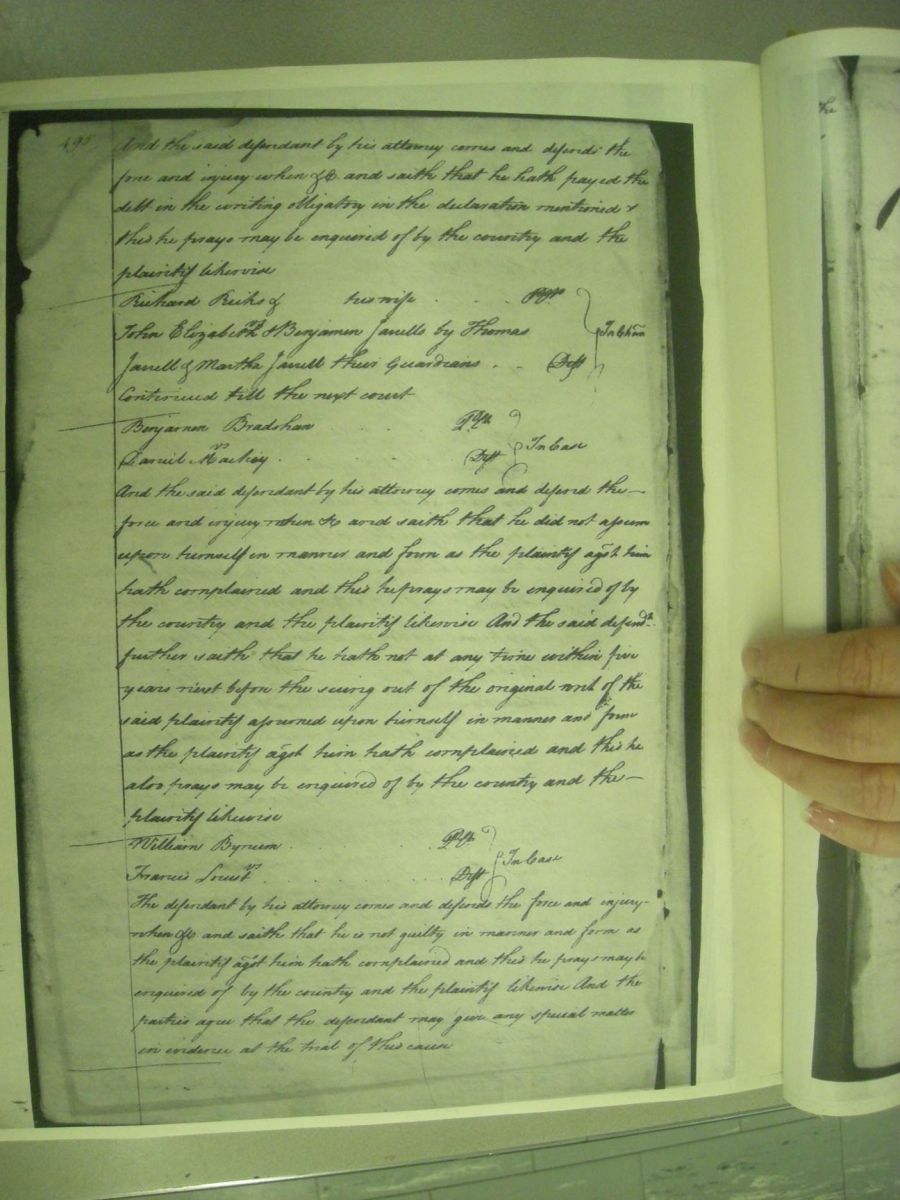 495
And the said defendant by his attorney comes and defends the
force and injury when &c and saith that he hath payed the
debt in the writing obligatory in the declaration mentioned &
this he prays may be enquired of by the country and the
plaintif likewise
Richard Ricks & his wife . . . Pltfs
vs
John Elizabeth & Benjamin Jarrells by Thomas
In Chan
Jarrell & Martha Jarrell their Guardians . . Deft
Continued till the next court
Benjamen Bradshaw . . . Pltf
vs
In Case
Daniel Mackey . . . . Deft
And the said defendant by his attorney comes and defend the
force and injury when &c and saith that he did not assum
upon himself in manner and form as the plaintif agst him
hath complained and this he prays may be enquired of by
the country and the plaintif likewise And the said defendt
further saith that he hath not at any time within five
years next before the sueing out of the original writ of the
said plaintif assumed upon himself in manner and form
as the plaintif agst him hath complained and this he
also prays may be enquired of by the country and the
plaintif likewise
William Bynum . . . Pltf
vs
In Case
Francis . . . . Deft
The defendant by his attorney comes and defends the force and injury
when &c and saith that he is not guilty in manner and form as
the plaintif agst him hath complained and this he prays may be
enquired of by the country and the plaintif likewise And the
parties agree that the defendant may give any special matter
in evidence at the trial of this cause
the